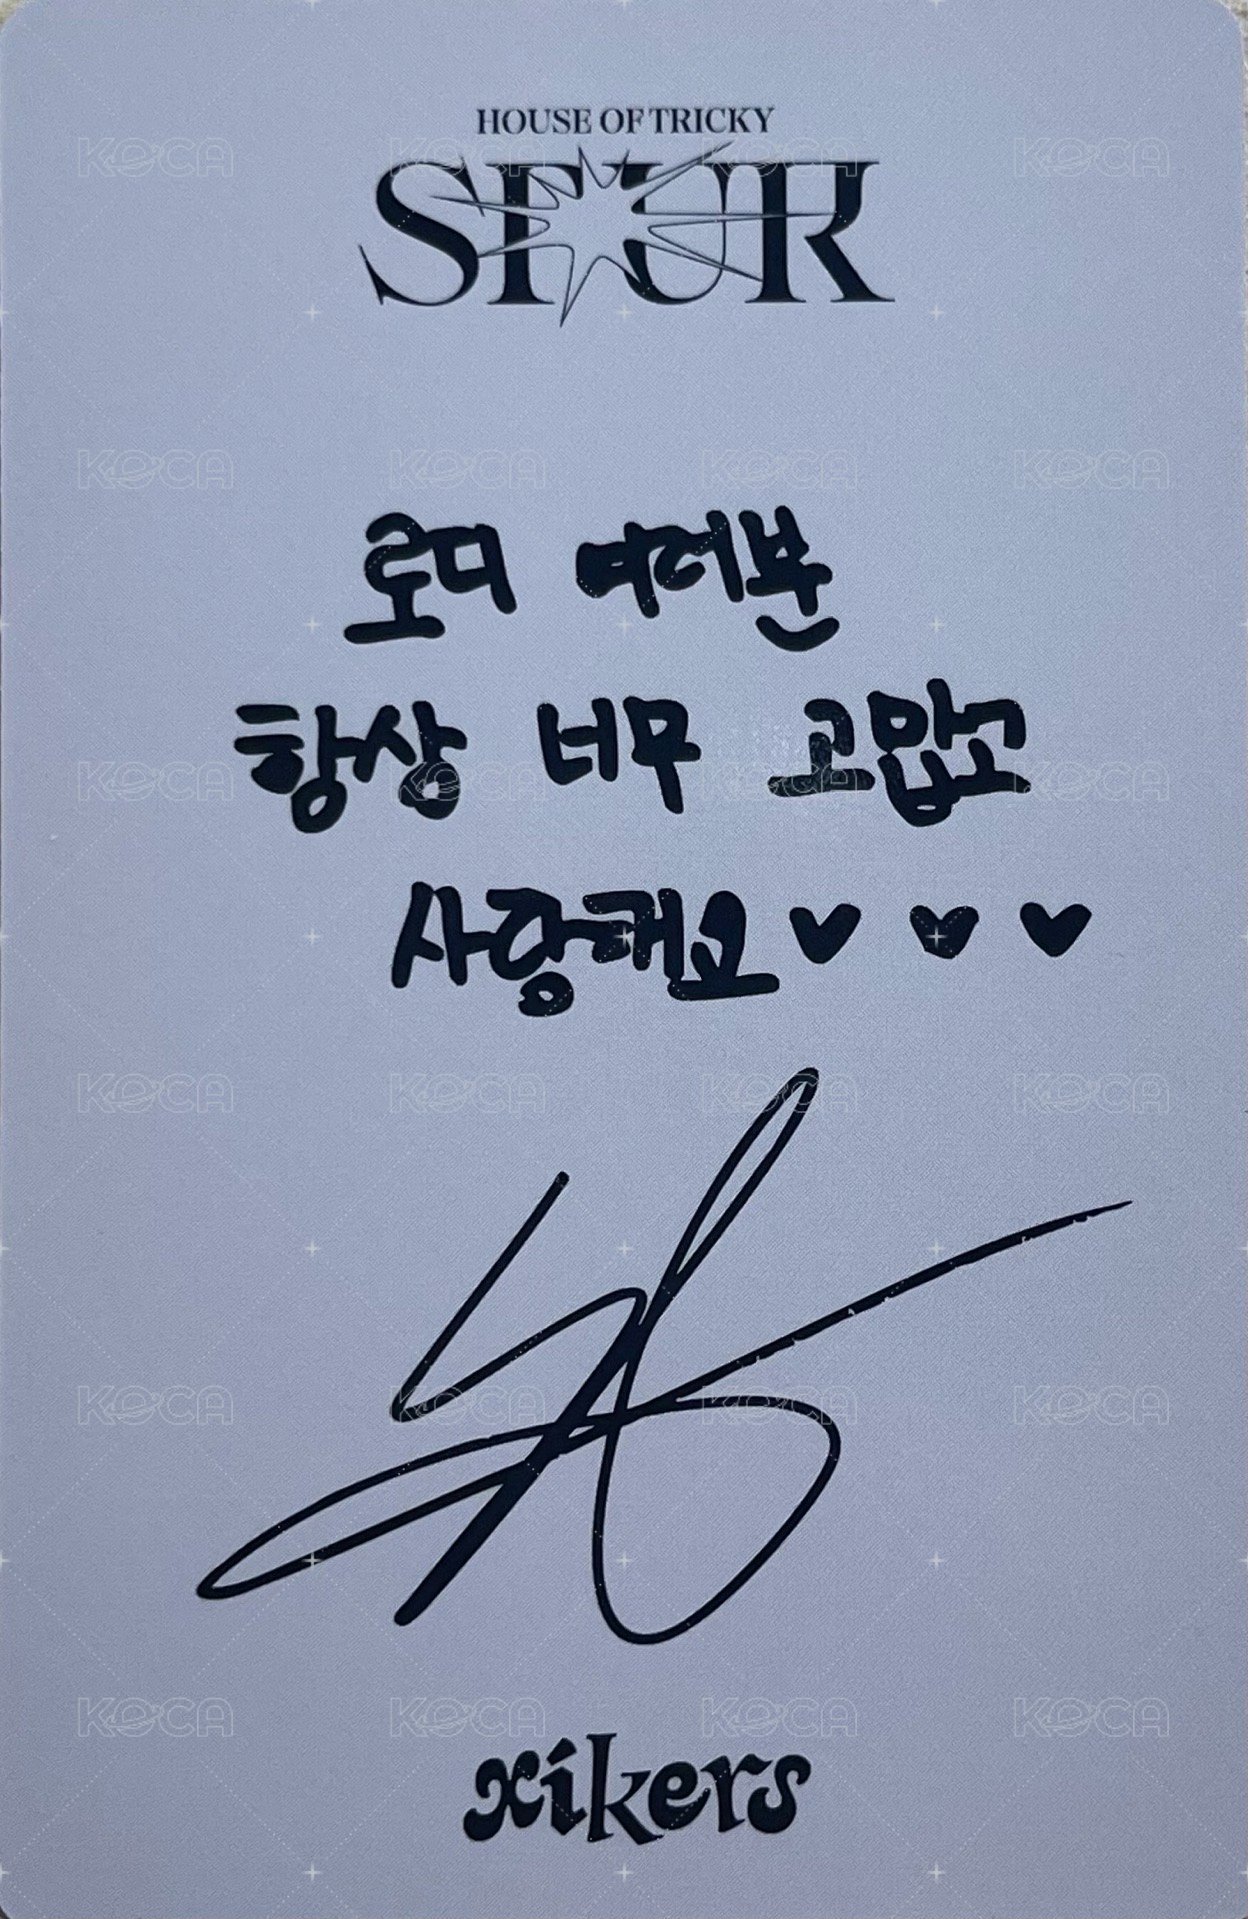 HOUSE OF TRICKY
SPUR
로디 여러분
항상 너무 고맙고
사랑해요♥♥♥
xikers
KOCA